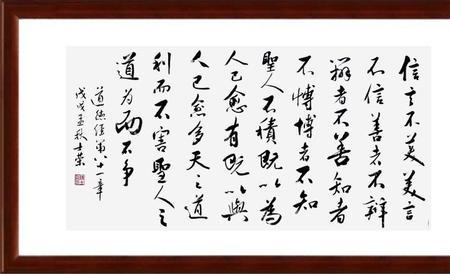 信言不美美言
不信善者不辯
辯者不善知者
不博博者不知
聖人不積既以為
人己愈有既以與
人己愈多天之道
利而不害聖人之
道為而不争
道德經第八十一章
戊戌孟秋士荣